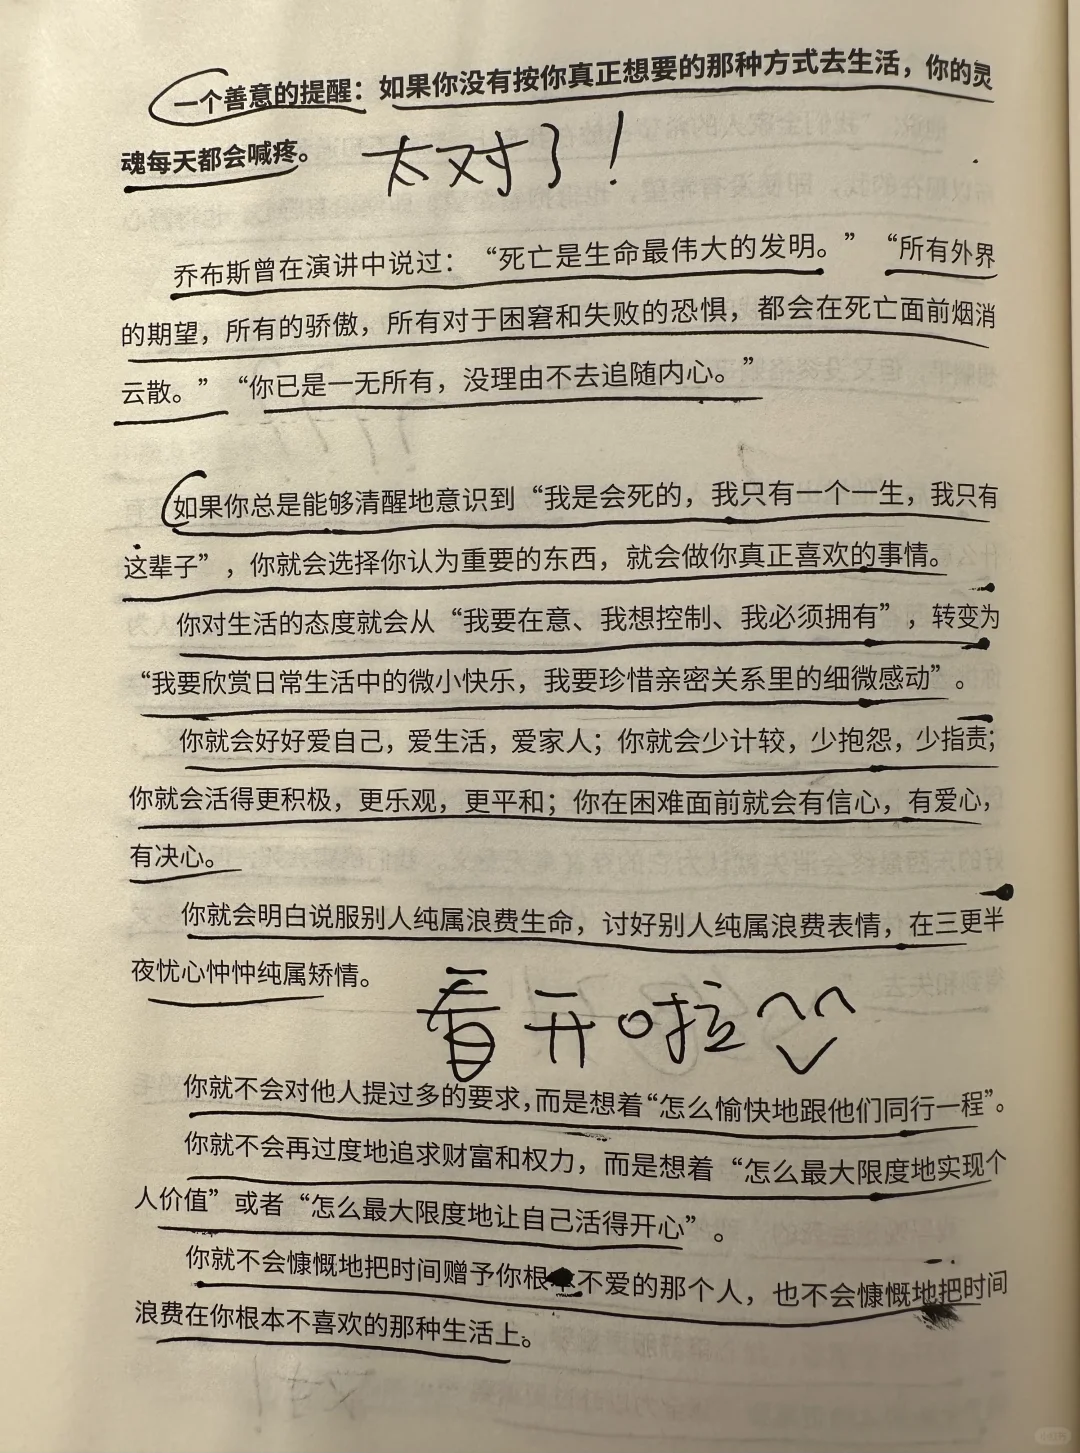 一个善意的提醒：如果你没有按你真正想要的那种方式去生活，你的灵
魂每天都会喊疼。
太对了！
乔布斯曾在演讲中说过：“死亡是生命最伟大的发明。”“所有外界
的期望，所有的骄傲，所有对于困窘和失败的恐惧，都会在死亡面前烟消
云散。”“你已是一无所有，没理由不去追随内心。”
如果你总是能够清醒地意识到“我是会死的，我只有一个一生，我只有
这辈子”，你就会选择你认为重要的东西，就会做你真正喜欢的事情。
你对生活的态度就会从“我要在意、我想控制、我必须拥有”，转变为
“我要欣赏日常生活中的微小快乐，我要珍惜亲密关系里的细微感动”。
你就会好好爱自己，爱生活，爱家人；你就会少计较，少抱怨，少指责；
你就会活得更积极，更乐观，更平和；你在困难面前就会有信心，有爱心，
有决心。
你就会明白说服别人纯属浪费生命，讨好别人纯属浪费表情，在三更半
夜忧心忡忡纯属矫情。
看开啦
你就不会对他人提过多的要求，而是想着“怎么愉快地跟他们同行一程”。
你就不会再过度地追求财富和权力，而是想着“怎么最大限度地实现个
人价值”或者“怎么最大限度地让自己活得开心”。
你就不会慷慨地把时间赠予你根本不爱的那个人，也不会慷慨地把时间
浪费在你根本不喜欢的那种生活上。
小红书